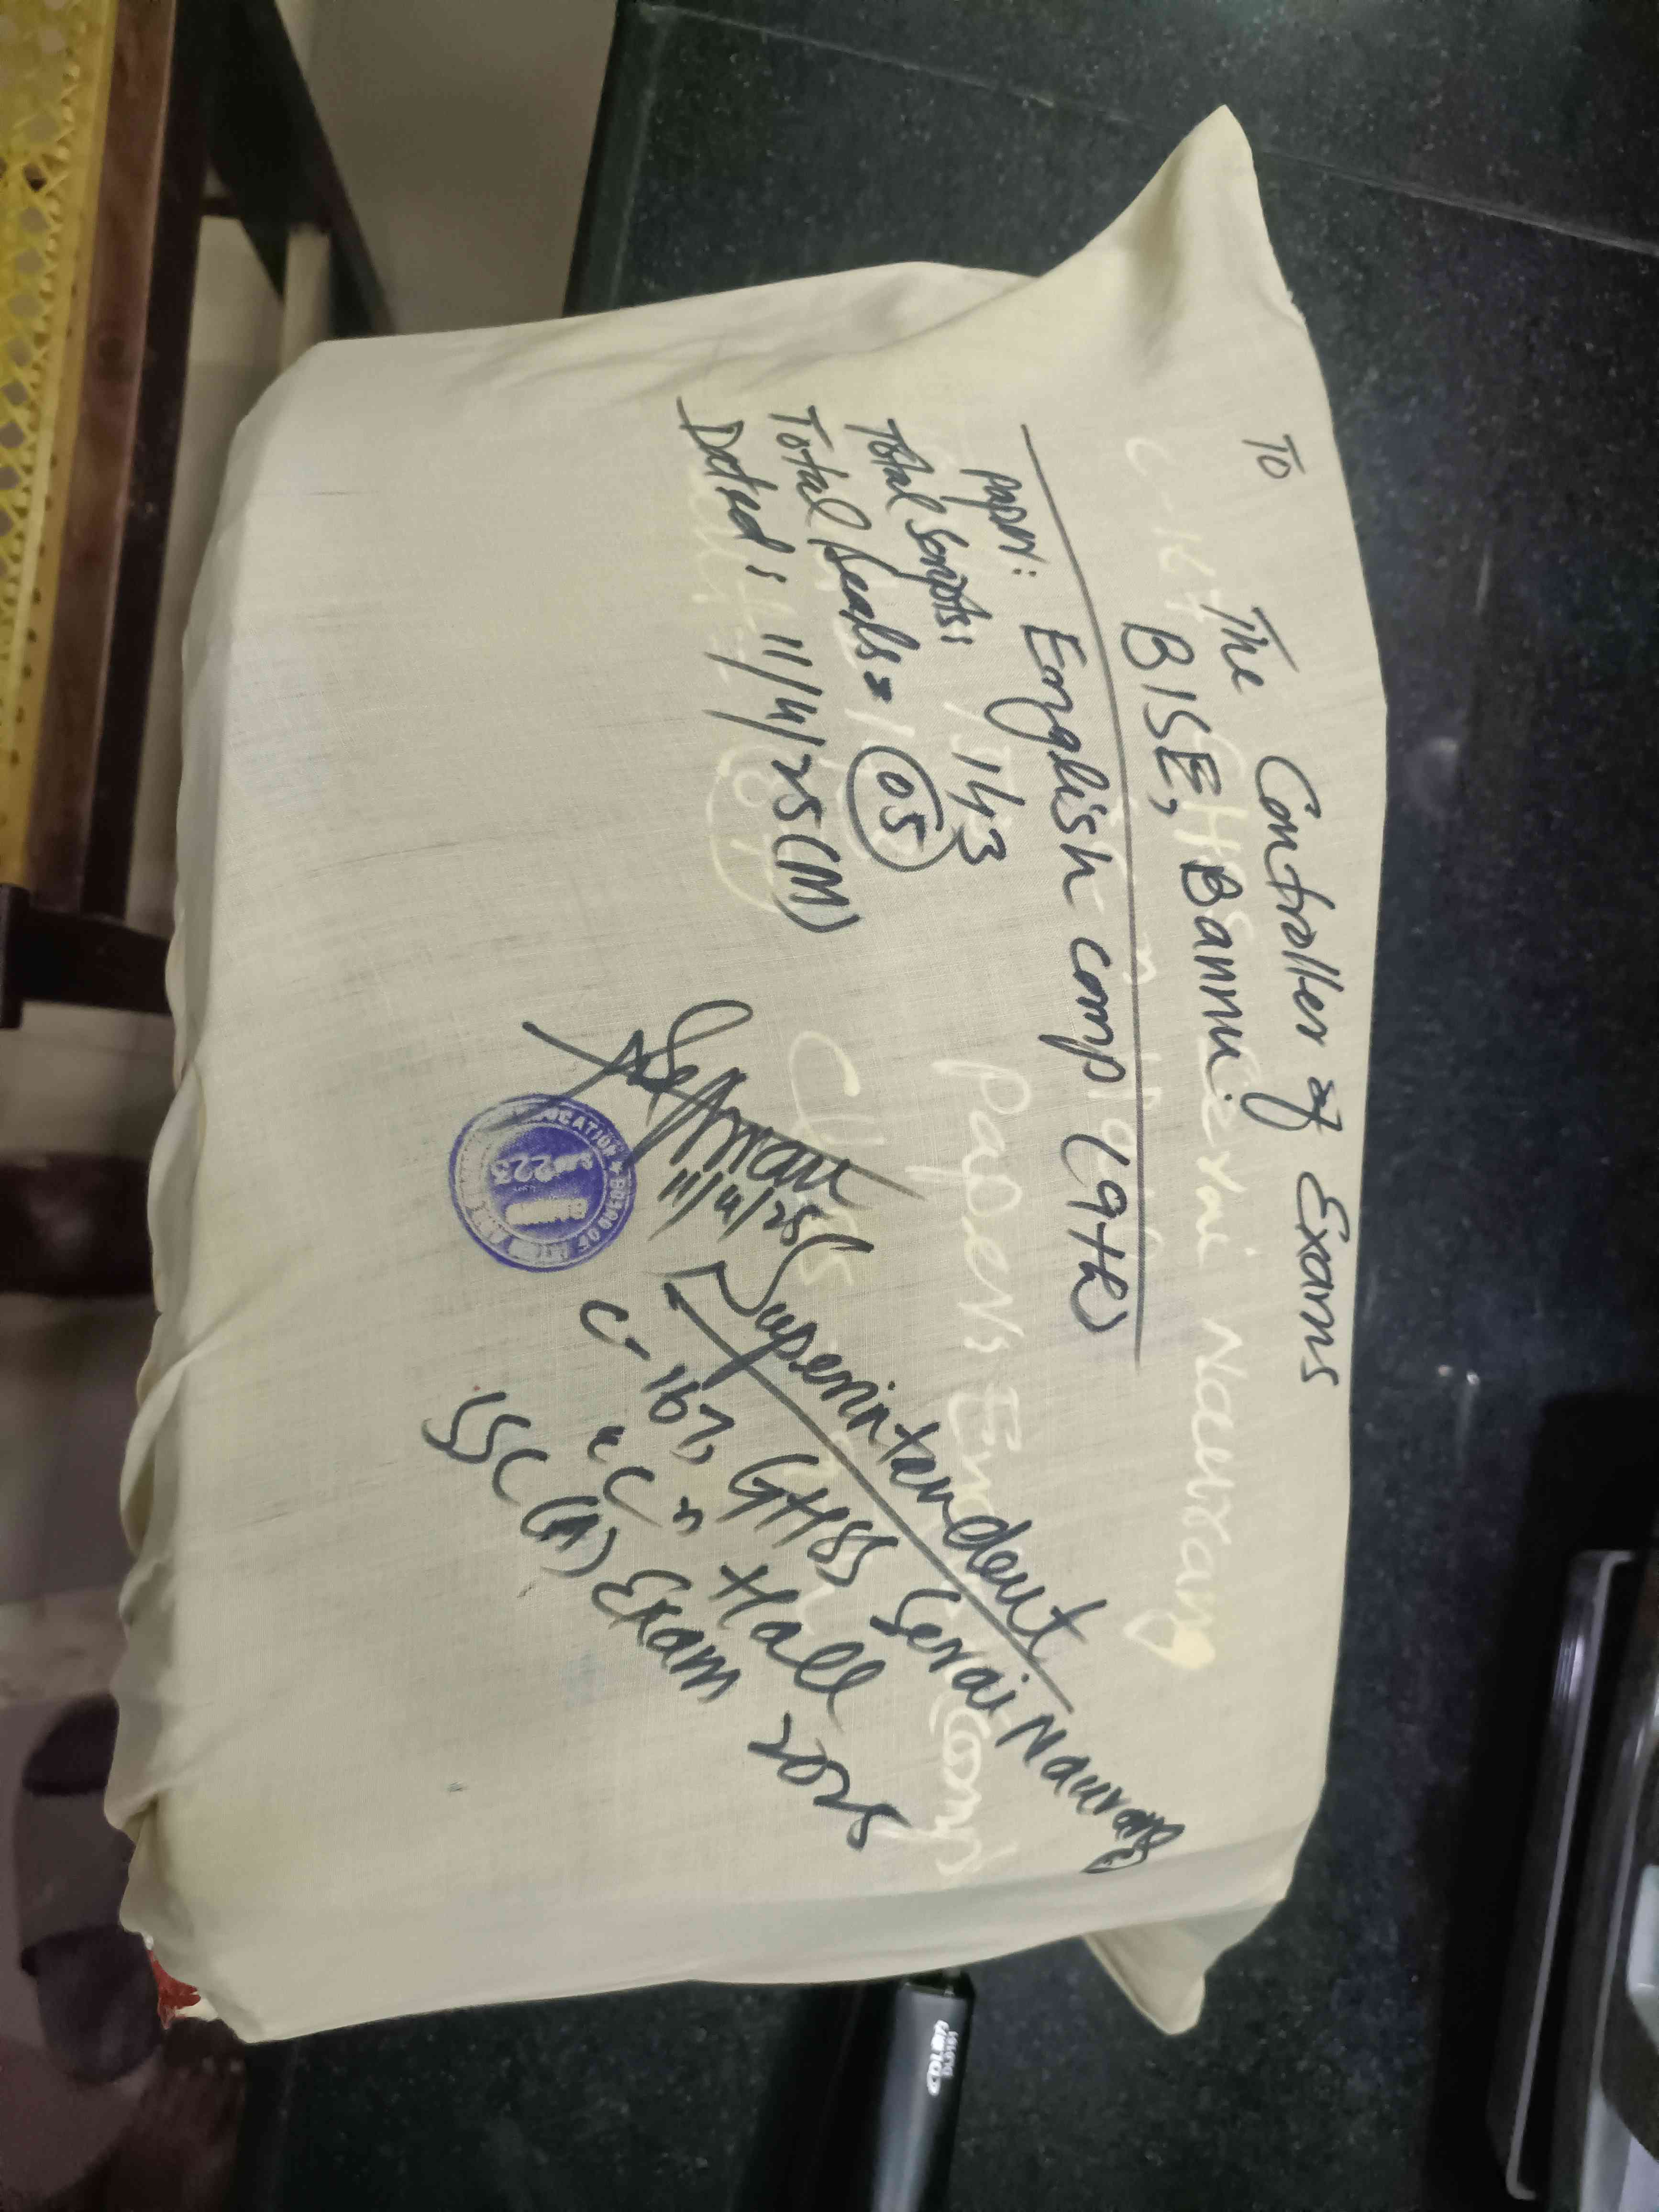 To
The Controller of Exams
BISE, Bannu
Paper: English comp (9th)
Total Scripts: 143
Total Seals = 05
Dated: 11/4/25 (M)
11/4/25
Superintendent
C-167, GHSS Serai Naurang
"C" Hall
SSC (A) Exam 2025
Papers Eng Comp
EDUCATION ★ BOARD OF INTER AND
223
DOLLAR